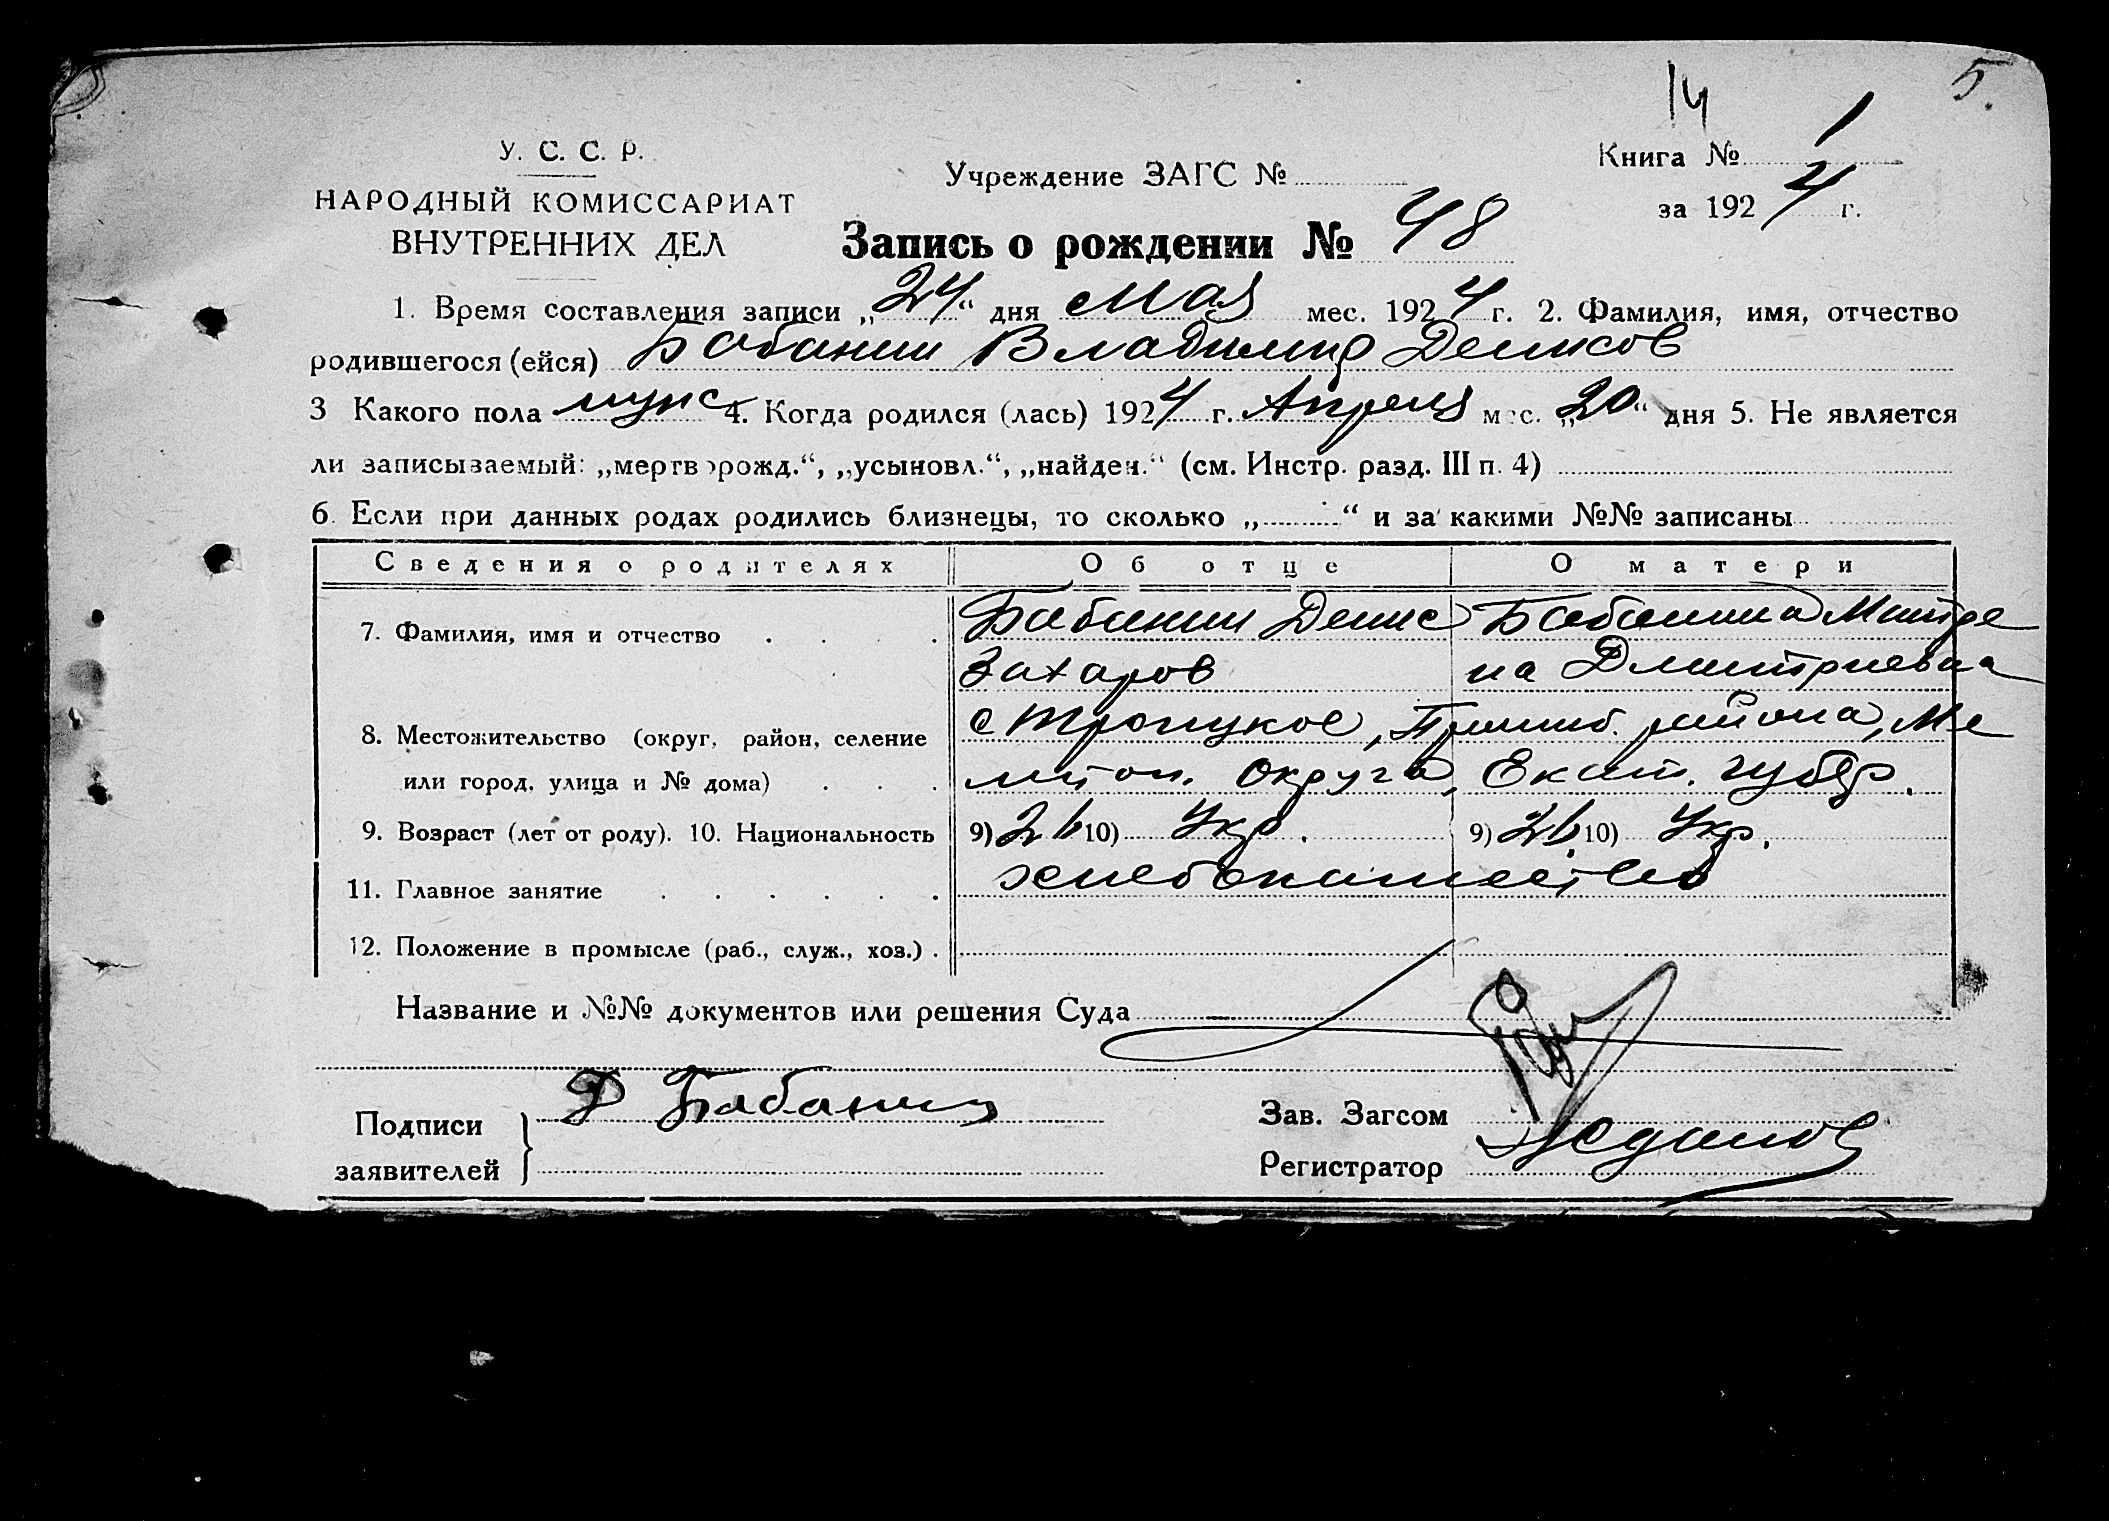 14
5.
У. С. С. Р.
НАРОДНЫЙ КОМИССАРИАТ
ВНУТРЕННИХ ДЕЛ
Учреждение ЗАГС №
Книга № 1
за 1924 г.
Запись о рождении № 48
1. Время составления записи „24“ дня Мая мес. 1924 г. 2. Фамилия, имя, отчество
родившегося (ейся) Бабанин Владимир Денисов
3 Какого пола мужс 4. Когда родился (лась) 1924 г. Апреля мес. „20“ дня 5. Не является
ли записываемый: „мертворожд.“, „усыновл.“, „найден.“ (см. Инстр. разд. III п. 4)
6. Если при данных родах родились близнецы, то сколько „ “ и за какими №№ записаны
Сведения о родителях Об отце О матери
7. Фамилия, имя и отчество Бабанин Денис Бабанина Матре
Захаров на Дмитриевна
8. Местожительство (округ, район, селение с Троицкое, Пришиб. района, Ме
или город, улица и № дома) литоп. округа, Екат. губер.
9. Возраст (лет от роду). 10. Национальность 9) 26 10) Укр. 9) 26 10) Укр.
11. Главное занятие хлебопашество
12. Положение в промысле (раб., служ., хоз.)
Название и №№ документов или решения Суда —
Подписи заявителей Д Бабанин
Зав. Загсом
Регистратор